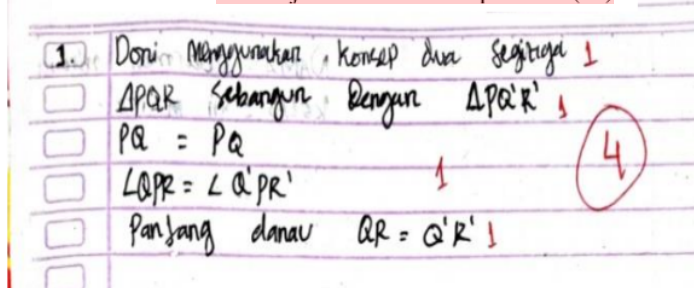 1. Doni Menggunakan konsep dua segitiga 1
ΔPQR Sebangun Dengan ΔPQ'R' 1
PQ = PQ
4
∠QPR = ∠Q'PR' 1
Panjang danau QR = Q'R' 1